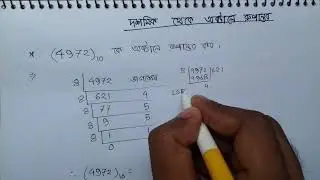 দশমিক থেকে অক্টালে রূপান্তর
* (4972)₁₀ কে অক্টালে রূপান্তর কর,
⇒ 8 | 4972 ভাগশেষ
8 | 621 4
8 | 77 5
8 | 9 5
8 | 1 1
8 | 4972 | 621
4968
4
∴ (4972)₁₀ =